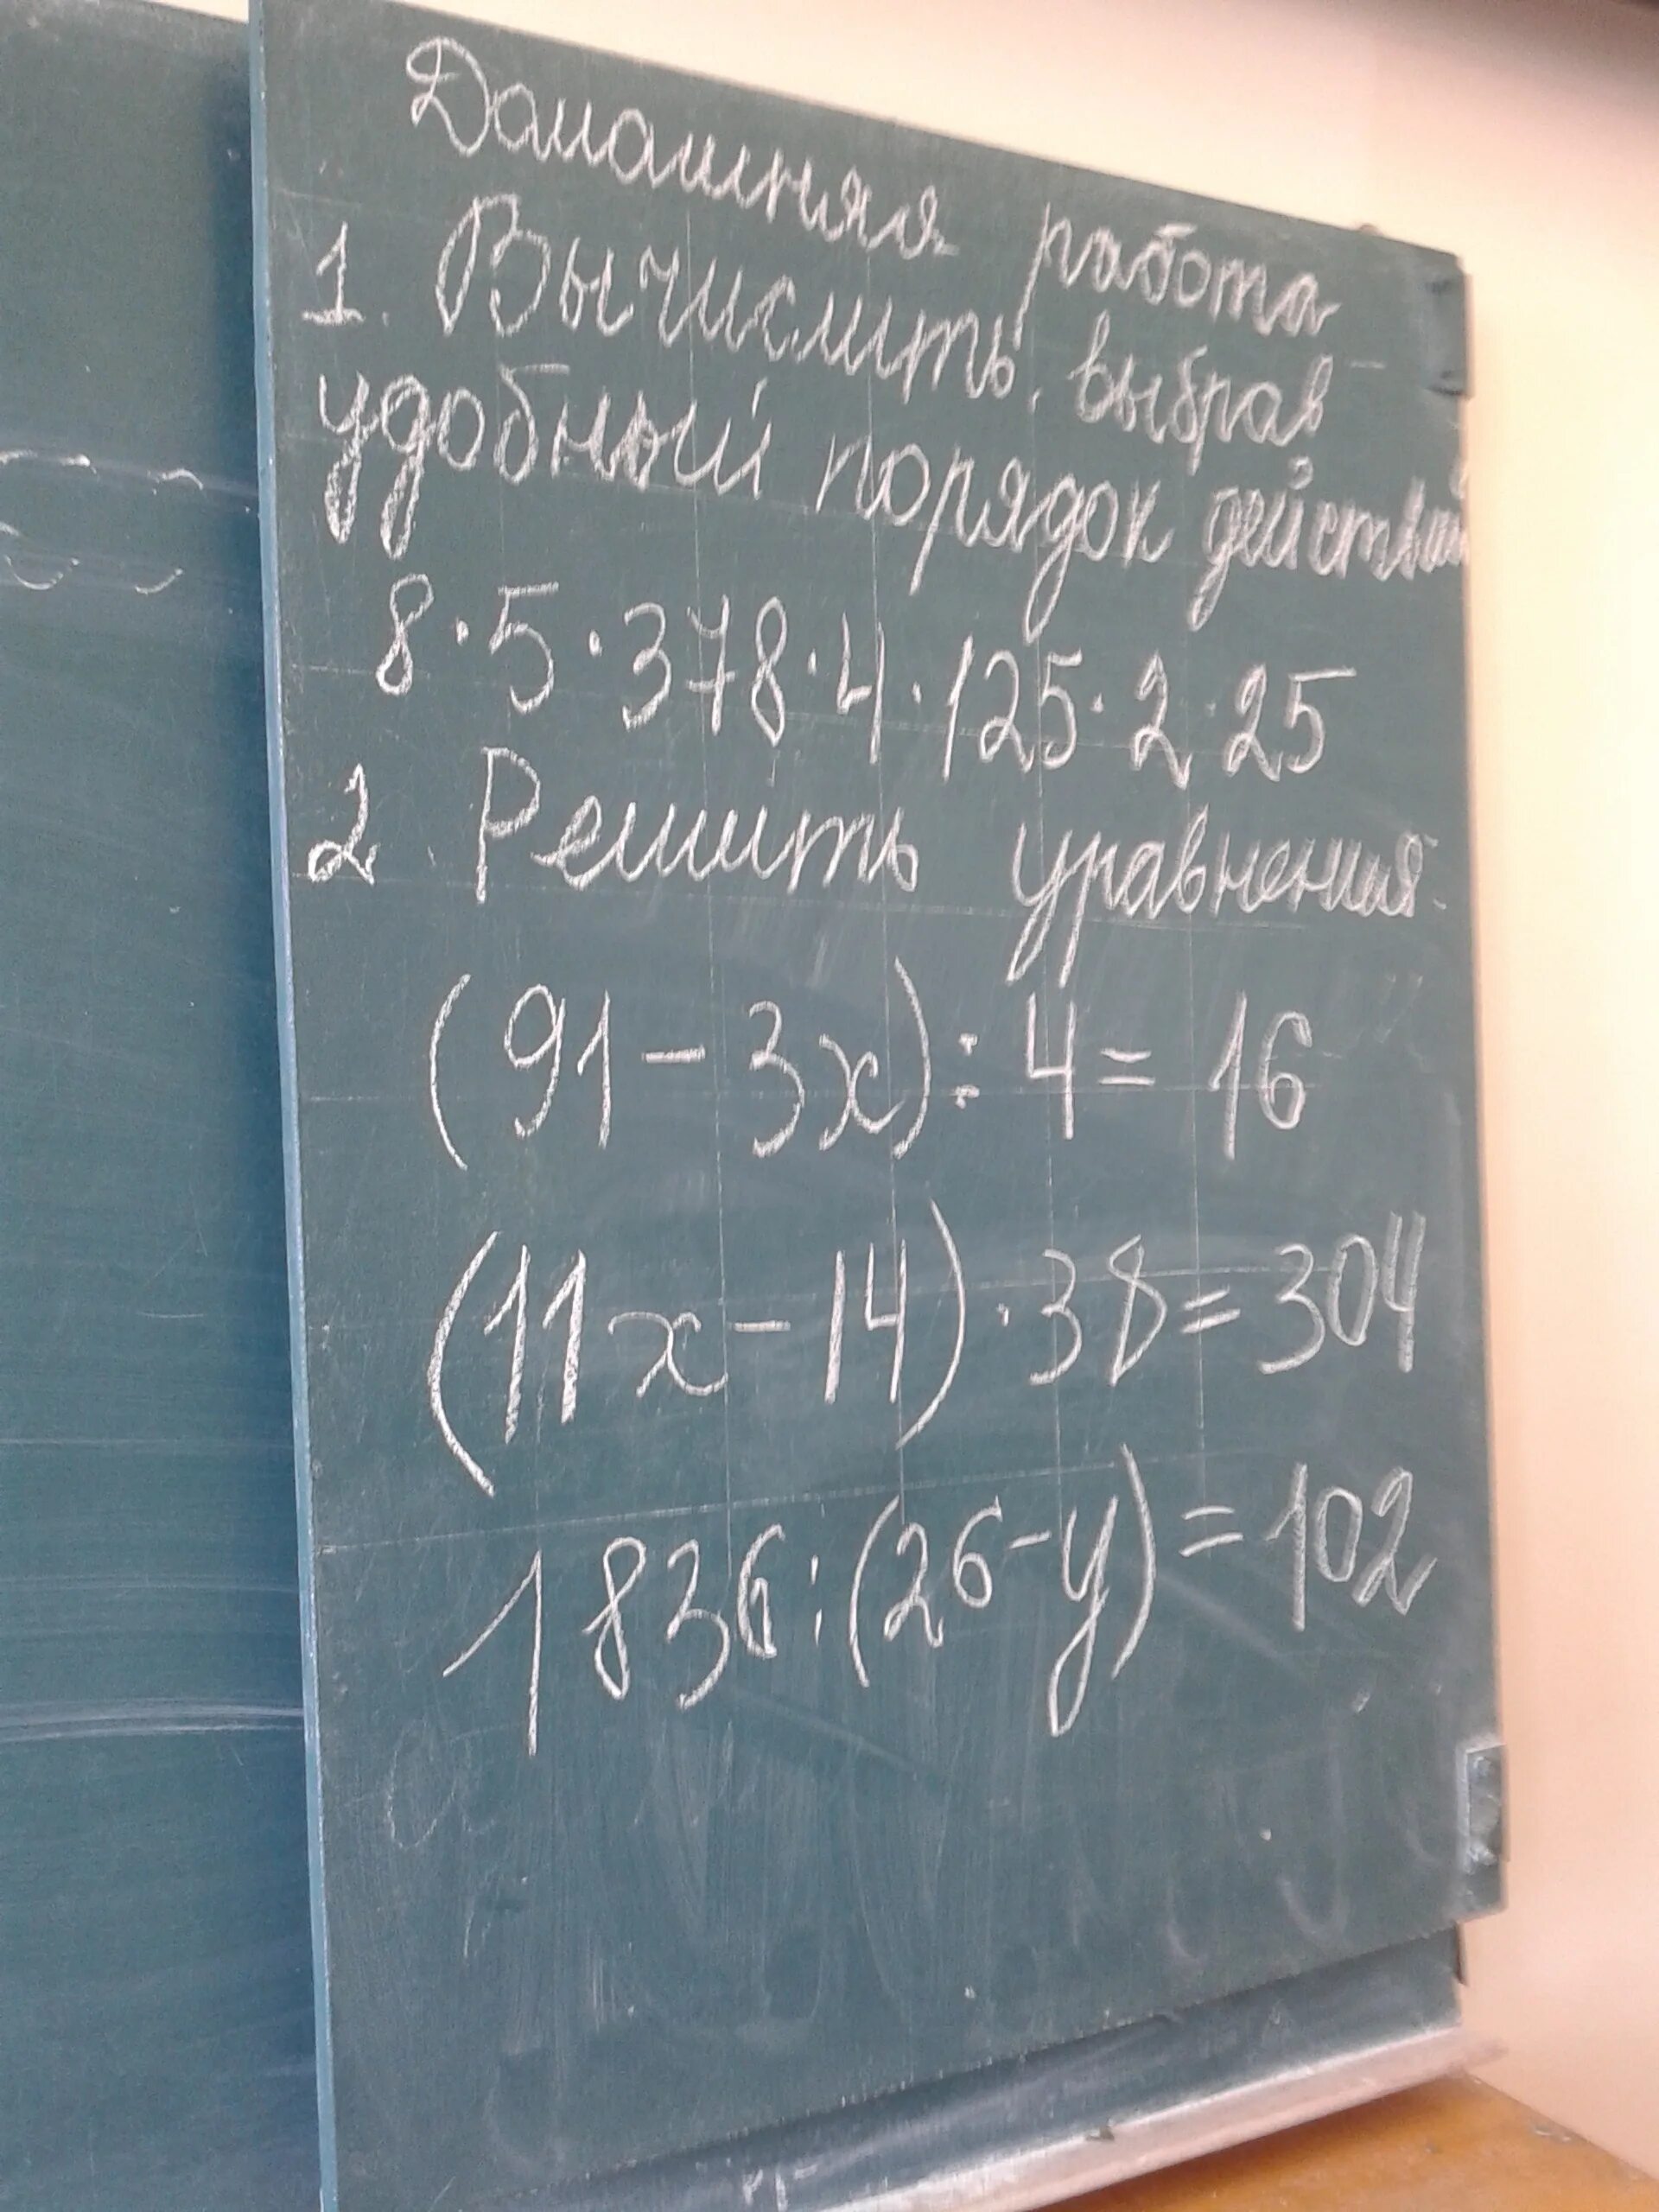 Домашняя работа
1. Вычислить, выбрав
удобный порядок действий
8·5·378·4·125·2·25
2. Решить уравнения
(91-3x):4=16
(11x-14)·38=304
1836:(26-y)=102